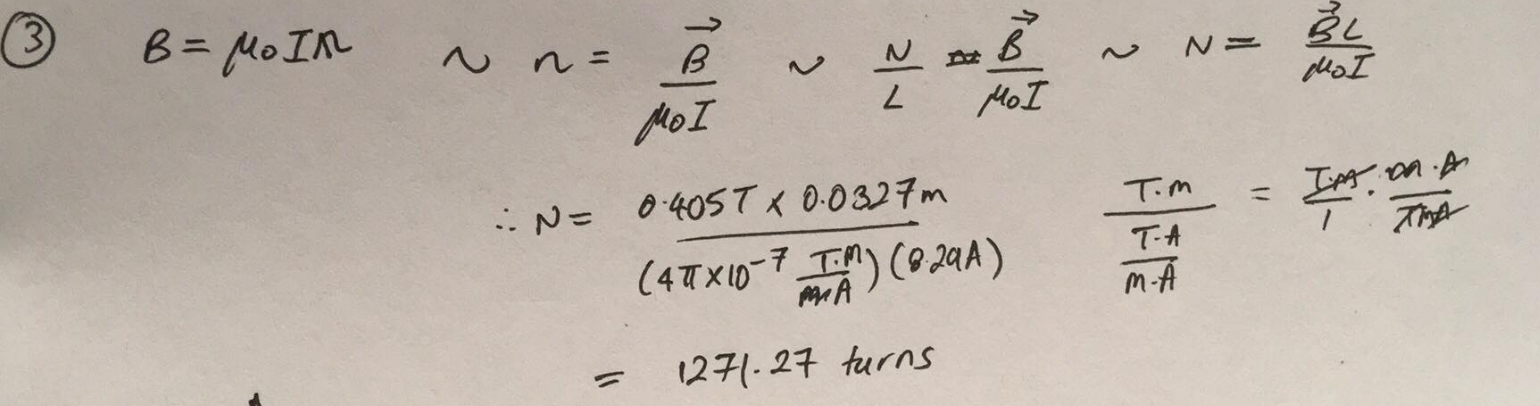 ③ B = μ₀In ~ n = B⃗/μ₀I ~ N/L = B⃗/μ₀I ~ N = B⃗L/μ₀I
∴ N = 0.405T × 0.0327m / (4π×10⁻⁷ T·m/A)(8.29A) T·m / (T·A/m·A) = T·m/1 · m·A/TmA
= 1271.27 turns